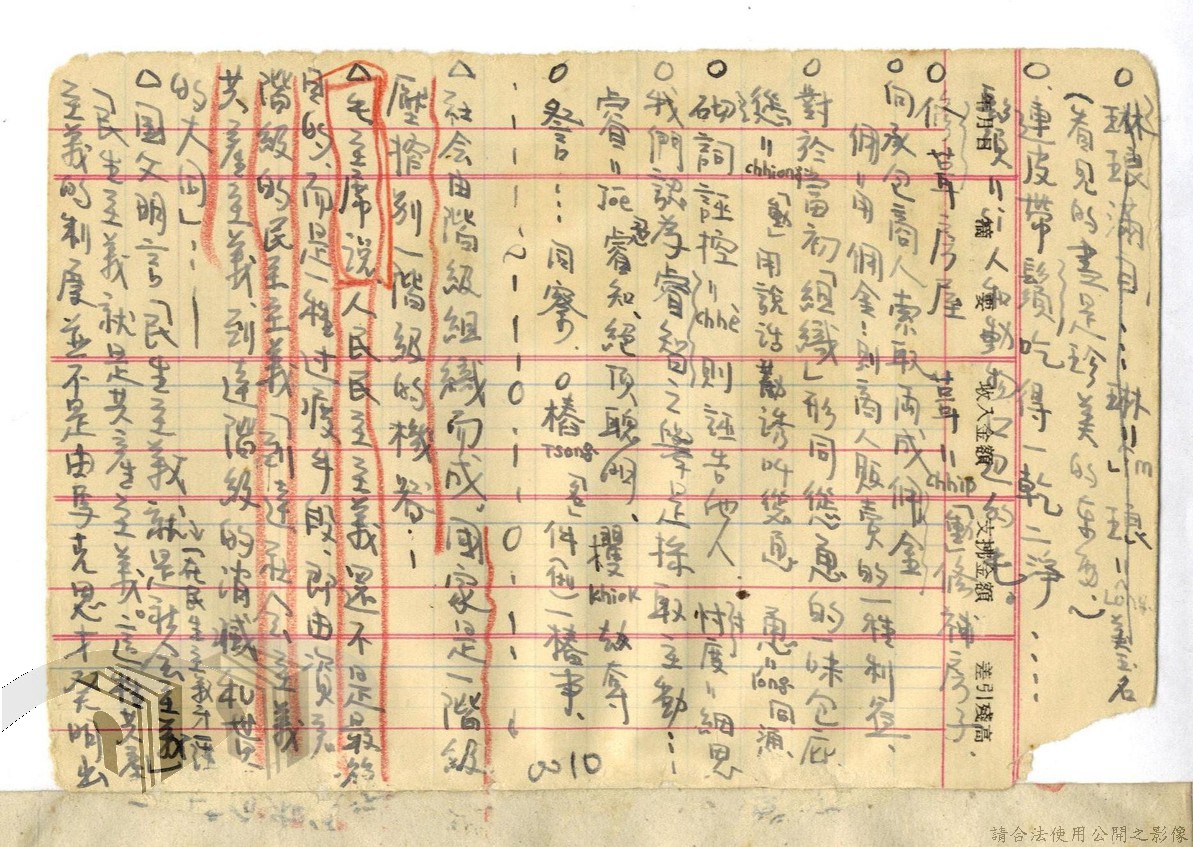 ○琳琅滿目…琳=lim 琅=long 美玉名
(看見的盡是珍美的東西。)
○連皮帶鬚吃得一乾二淨……
鬚=人和動物口邊的毛。
年月日 摘要 收入金額 支拂金額 差引殘高
○修葺房屋 葺=chhip「動」修補房子
○向承包商人索取兩成佣金
佣=用 佣金:別商人販賣的一種利益、
○對於當初「組織」形同慫恿的一味包庇
慫=chhiong「動」用說話勸誘叫慫恿 恿=iong同湧、
○砌詞誣控=chhè 則誣告他人. 忖度=細思
○我們認為睿智之舉是採取主動…
睿=joe睿知、絕頂聰明、攫khiok 故奪
○詧言…同察. ○樁Tsong「名」件個一樁事、
0010
△社会由階級組織而成。國家是一階級
壓搾別一階級的機器…
△毛主席說人民民主主義還不是最終
目的、而是一種过度手段、即由資产
階級的民主主義、到達社会主義
共產主義、到達階級的消滅和世界
的大同」…
△國父明言「民生主義、就是社会主義」
「民生主義就是共產主義」這種共產
主義的制度並不是由馬克思才發明出
請合法使用公開之影像